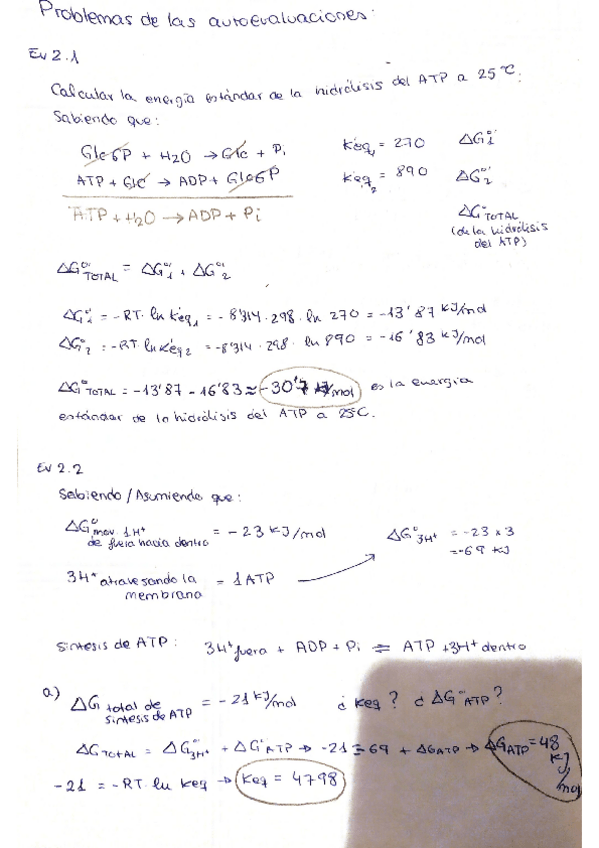 Problemas de las autoevaluaciones:
Ev 2.1
Calcular la energía estándar de la hidrólisis del ATP a 25 ºC.
Sabiendo que:
Glc6P + H2O → Glc + Pi Keq1 = 270 ΔGº'1
ATP + Glc → ADP + Glc6P Keq2 = 890 ΔGº'2
ATP + H2O → ADP + Pi ΔGº'TOTAL
(de la hidrólisis
del ATP)
ΔGº'TOTAL = ΔGº'1 + ΔGº'2
ΔGº'1 = -RT· ln Keq1 = - 8'314 · 298 · ln 270 = -13'87 KJ/mol
ΔGº'2 = -RT ln Keq2 = -8'314 · 298 · ln 890 = -16'83 KJ/mol
ΔGº'TOTAL = -13'87 - 16'83 ≈ -30'7 KJ/mol es la energía
estándar de la hidrólisis del ATP a 25ºC.
Ev 2.2
Sabiendo / Asumiendo que:
ΔGº'mov. 1H+ = - 23 KJ/mol ΔGº'3H+ = -23 x 3
de fuera hacia dentro = -69 KJ
3H+ atravesando la = 1 ATP
membrana
Síntesis de ATP: 3H+ fuera + ADP + Pi ⇌ ATP + 3H+ dentro
a) ΔG total de = -21 KJ/mol ¿ Keq? ¿ ΔGº'ATP?
síntesis de ATP
ΔGTOTAL = ΔGº'3H+ + ΔGº'ATP → -21 = -69 + ΔGATP → ΔGATP = 48
KJ/mol
-21 = -RT ln Keq → Keq = 4798